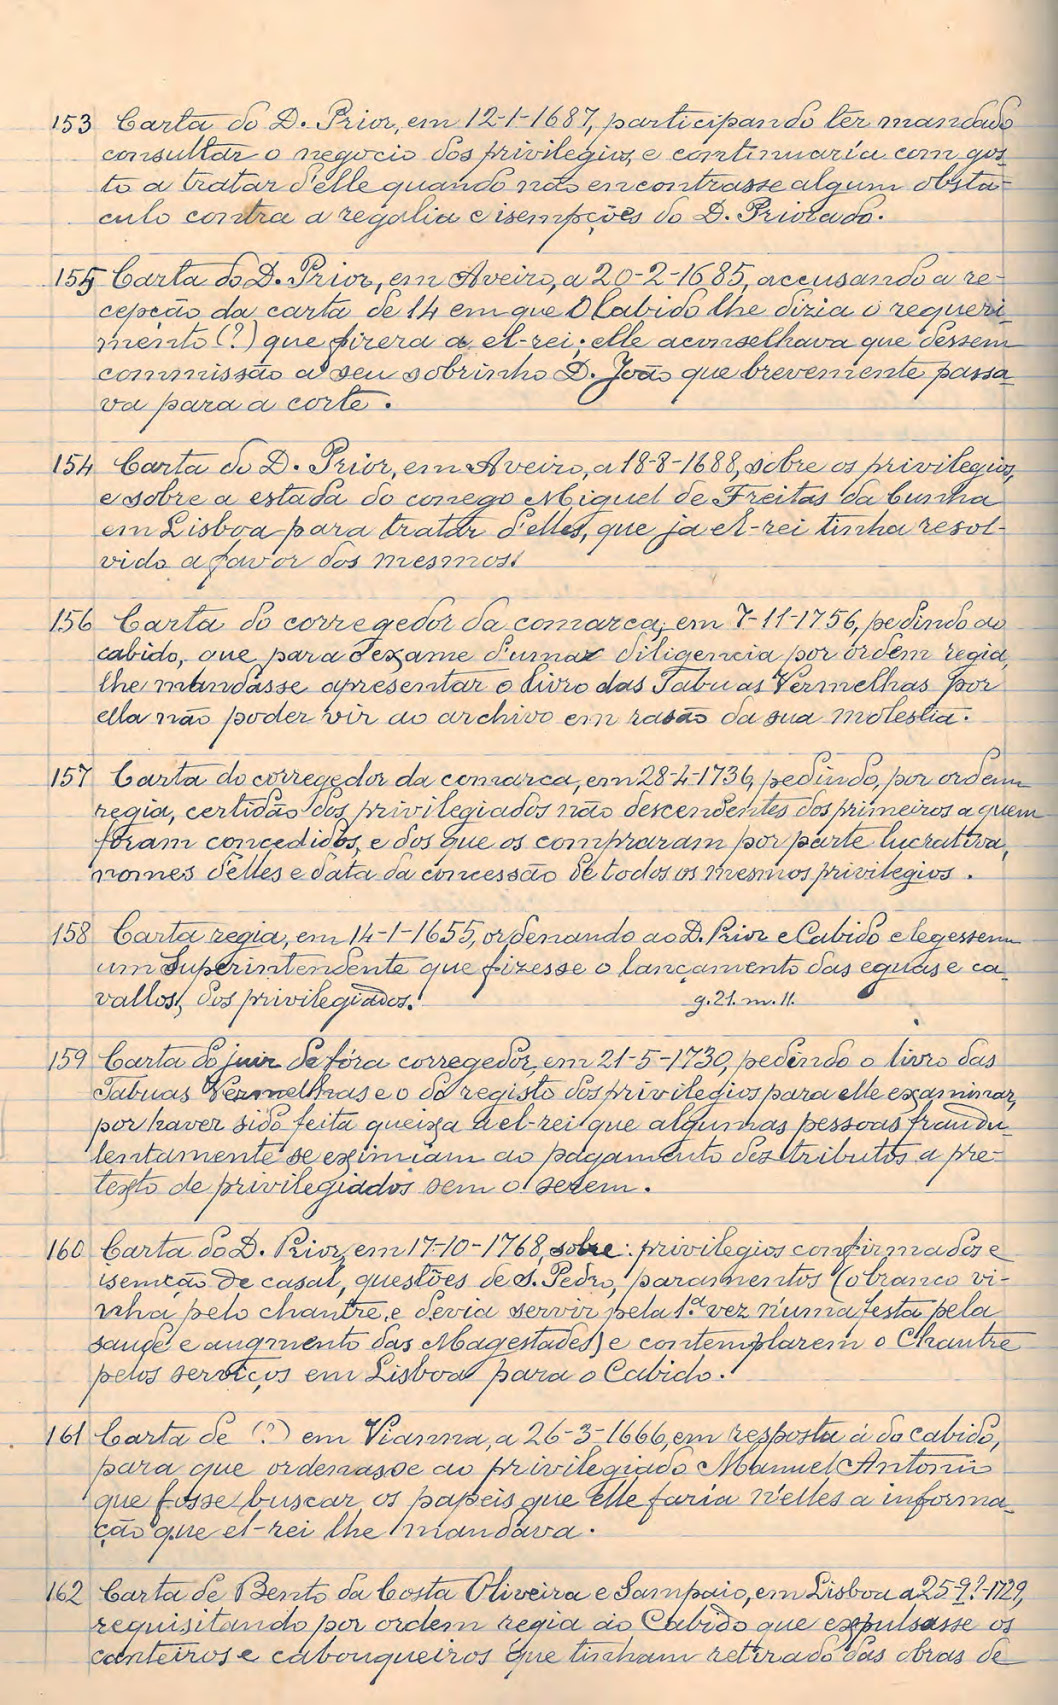 153 Carta do D. Prior, em 12-1-1687, participando ter mandado
consultar o negocio dos privilegios, e continuaria com gos-
to a tratar d'elle quando não encontrasse algum obsta-
culo contra a regalia e isempções do D. Priorado.
155 Carta do D. Prior, em Aveiro, a 20-2-1685, accusando a re-
cepção da carta de 14 em que o Cabido lhe dizia o requeri-
mento (?) que fizera a el-rei; elle aconselhava que dessem
commissão a seu sobrinho D. João que brevemente passa-
va para a corte.
154 Carta do D. Prior, em Aveiro, a 18-8-1688, sobre os privilegios,
e sobre a estada do conego Miguel de Freitas da Cunha
em Lisboa para tratar d'elles, que ja el-rei tinha resol-
vido a favor dos mesmos.
156 Carta do corregedor da comarca, em 7-11-1756, pedindo ao
cabido, que para o exame d'uma diligencia por ordem regia,
lhe mandasse apresentar o livro das Tabuas Vermelhas por
ella não poder vir ao archivo em rasão da sua molestia.
157 Carta do corregedor da comarca, em 28-4-1736, pedindo, por ordem
regia, certidão dos privilegiados não descendentes dos primeiros a quem
foram concedidos, e dos que os compraram por parte lucrativa,
nomes d'elles e data da concessão de todos os mesmos privilegios.
158 Carta regia, em 14-1-1655, ordenando ao D. Prior e Cabido elegessem
um Superintendente que fizesse o lançamento das eguas e ca-
vallos, dos privilegiados. g. 21. m. 11.
159 Carta do juiz de fóra corregedor, em 21-5-1730, pedindo o livro das
Tabuas Vermelhas e o do registo dos privilegios para elle examinar,
por haver sido feita queixa a el-rei que algumas pessoas fraudu-
lentamente se eximiam ao pagamento dos tributos a pre-
texto de privilegiados sem o serem.
160 Carta do D. Prior, em 17-10-1768, sobre: privilegios confirmados e
isenção de casal, questões de S. Pedro, paramentos (o branco vi-
nha pelo chantre, e devia servir pela 1.ª vez n'uma festa pela
saude e augmento das Magestades) e contemplarem o Chantre
pelos serviços em Lisboa para o Cabido.
161 Carta de (?) em Vianna, a 26-3-1666, em resposta á do cabido,
para que ordenasse ao privilegiado Manuel Antonio
que fosse buscar os papeis que elle faria n'elles a informa-
ção que el-rei lhe mandava.
162 Carta de Bento da Costa Oliveira e Sampaio, em Lisboa a 25-9?-1729,
requisitando por ordem regia ao Cabido que expulsasse os
canteiros e cabouqueiros que tinham retirado das obras de